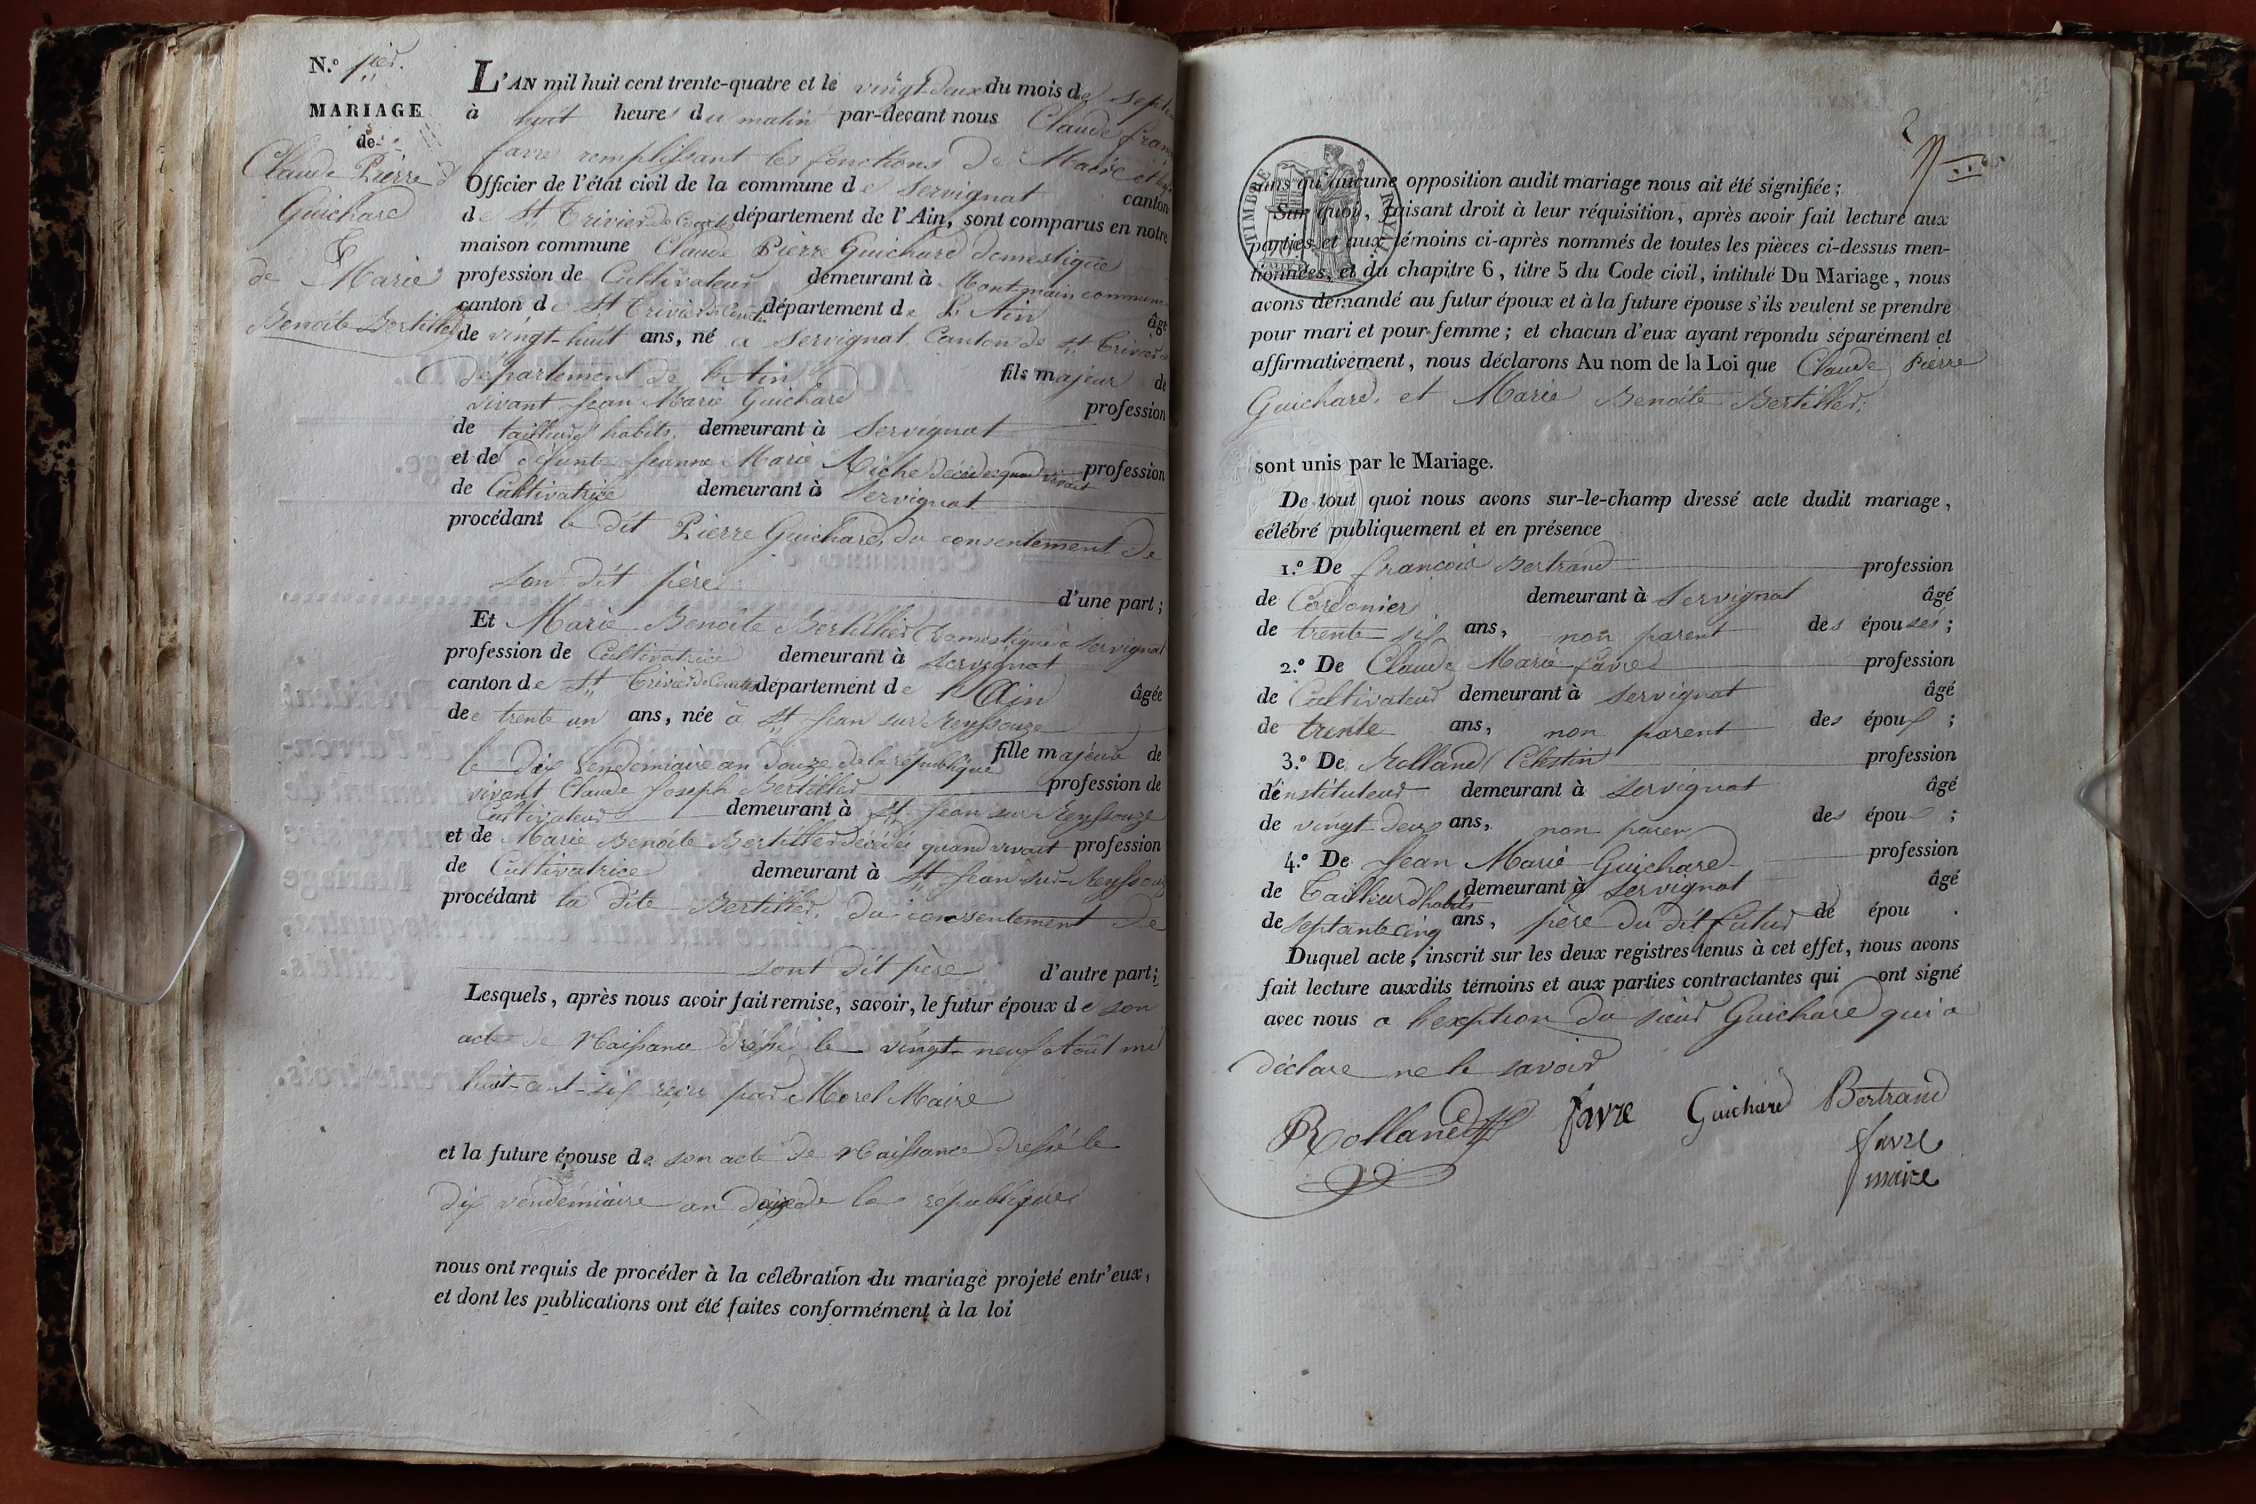 N.º 1er.
MARIAGE
de
Claude Pierre
Guichard
&
de Marie
Benoite Bertiller
L'AN mil huit cent trente-quatre et le vingt-deux du mois de septem
à huit heures du matin par-devant nous Claude fran
favre remplissant les fonctions de Maire et
Officier de l'état civil de la commune de Servignat canton
de St Trivier de Courtes département de l'Ain, sont comparus en notre
maison commune Claude Pierre Guichard domestique
profession de Cultivateur demeurant à Montmain commune
canton de St Trivier de Courtes département de L'Ain âgé
de vingt-huit ans, né a Servignat Canton de St Trivier
département de l'Ain fils majeur de
vivant Jean Marie Guichard profession
de tailleur d'habits demeurant à Servignat
et de defunte Jeanne Marie Riche décédée quand vivait profession
de Cultivatrice demeurant à Servignat
procédant le dit Pierre Guichard, du consentement de
son dit père
d'une part ;
Et Marie Benoite Bertiller Domestique à Servignat
profession de Cultivatrice demeurant à Servignat
canton de St Trivier de Courtes département de l'Ain âgée
de trente un ans, née à St Jean sur Reyssouze
le dix Vendemiaire an douze de la république fille majeure de
vivant Claude Joseph Bertiller profession de
Cultivateur demeurant à St Jean sur Reyssouze
et de Marie Benoite Bertiller décédée quand vivait profession
de Cultivatrice demeurant à St Jean sur Reyssouze
procédant la dite Bertiller, du consentement de
sont dit père d'autre part ;
Lesquels, après nous avoir fait remise, savoir, le futur époux de son
acte de Naissance dressé le vingt-neuf Août mil
huit-cent-six reçu par Morel Maire
et la future épouse de son acte de Naissance dressé le
dix vendémiaire an douze de la république
nous ont requis de procéder à la célébration du mariage projeté entr'eux,
et dont les publications ont été faites conformément à la loi
2
TIMBRE ROYAL
sans qu'aucune opposition audit mariage nous ait été signifiée ;
Sur quoi, faisant droit à leur réquisition, après avoir fait lecture aux
parties et aux témoins ci-après nommés de toutes les pièces ci-dessus men-
tionnées, et du chapitre 6, titre 5 du Code civil, intitulé Du Mariage, nous
avons demandé au futur époux et à la future épouse s'ils veulent se prendre
pour mari et pour femme ; et chacun d'eux ayant répondu séparément et
affirmativement, nous déclarons Au nom de la Loi que Claude Pierre
Guichard, et Marie Benoite Bertiller,
sont unis par le Mariage.
De tout quoi nous avons sur-le-champ dressé acte dudit mariage,
célébré publiquement et en présence
1.º De francois Bertrand profession
de Cordonier demeurant à Servignat âgé
de trente six ans, non parent des épouses ;
2.º De Claude Marie favre profession
de Cultivateur demeurant à Servignat âgé
de trente ans, non parent des époux ;
3.º De Rolland Celestin profession
d'instituteur demeurant à Servignat âgé
de vingt-deux ans, non paren des époux ;
4.º De Jean Marie Guichard profession
de Tailleur d'habits demeurant à Servignat âgé
de septante cinq ans, père du dit futur de épou .
Duquel acte, inscrit sur les deux registres tenus à cet effet, nous avons
fait lecture auxdits témoins et aux parties contractantes qui ont signé
avec nous a l'exeption du sieur Guichard qui a
déclare ne le savoir
Rolland favre Guichard Bertrand
favre
maire